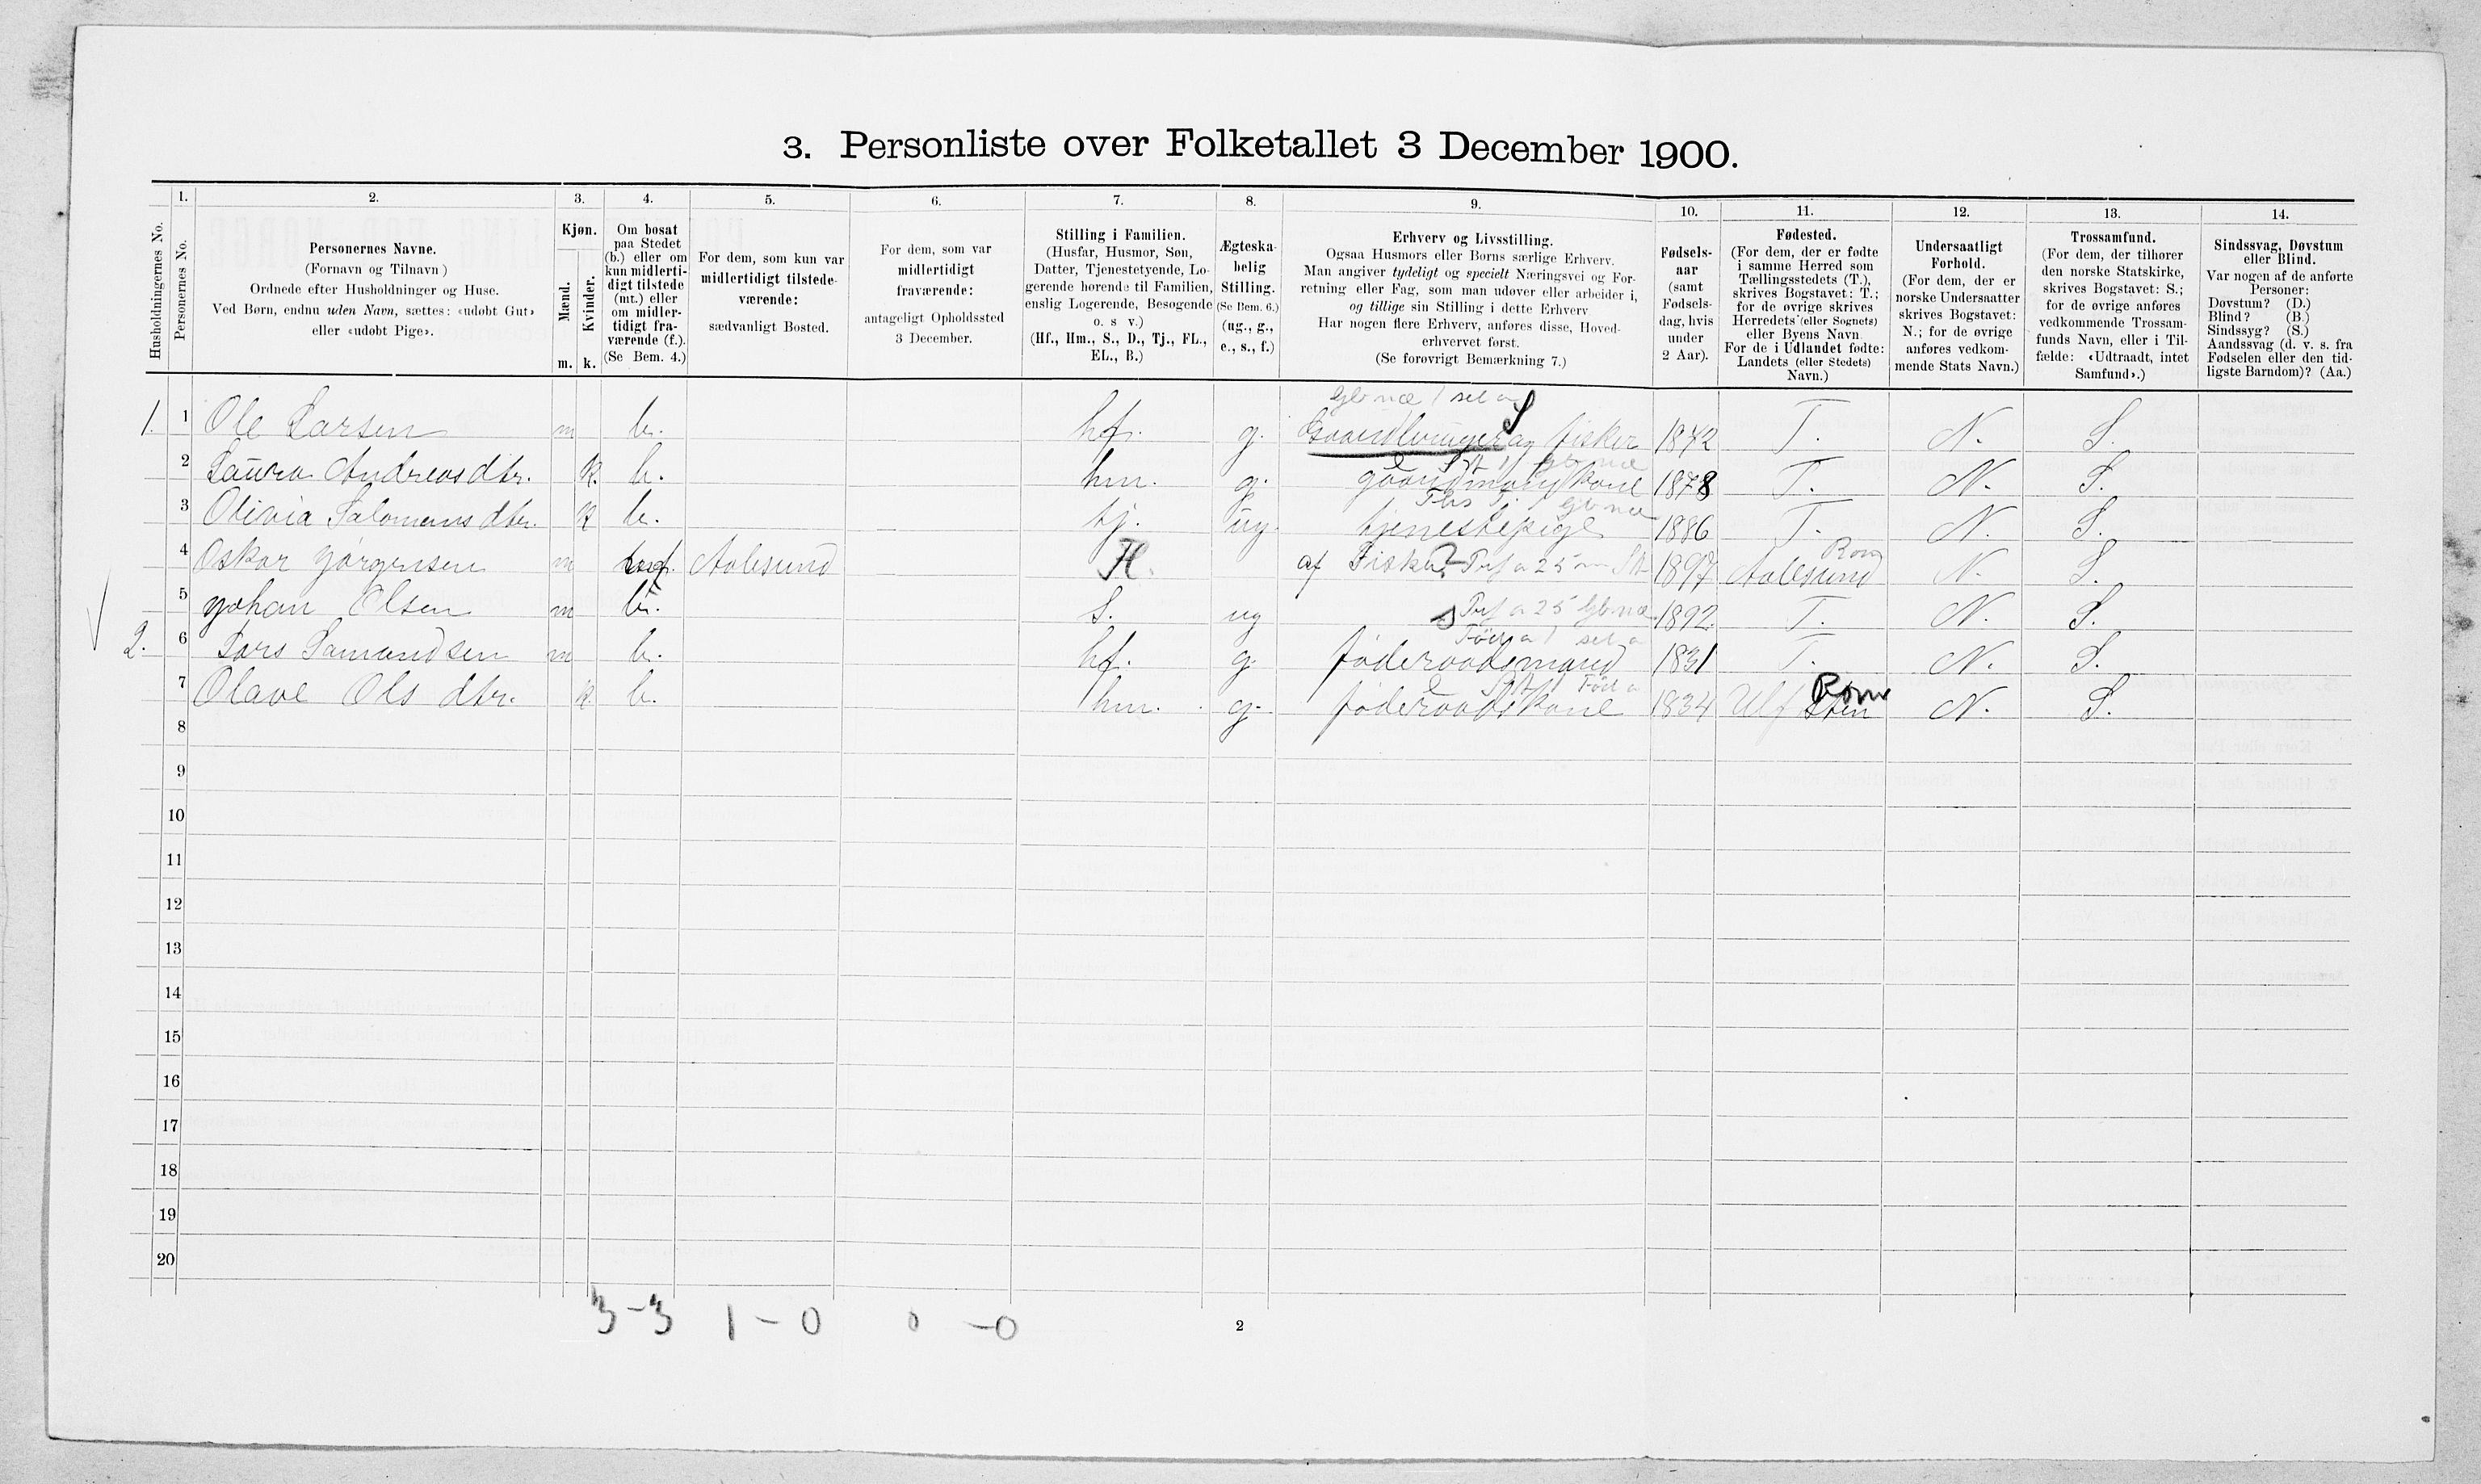 3. Personliste over Folketallet 3 December 1900.
1. 2. 3. 4. 5. 6. 7. 8. 9. 10. 11. 12. 13. 14.
Husholdningernes No.
Personernes No.
Personernes Navne.
(Fornavn og Tilnavn)
Ordnede efter Husholdninger og Huse.
Ved Børn, endnu uden Navn, sættes: «udøbt Gut»
eller «udøbt Pige».
Kjøn.
Mænd.
Kvinder.
m. k.
Om bosat
paa Stedet
(b.) eller om
kun midlerti-
digt tilstede
(mt.) eller
om midler-
tidigt fra-
værende (f.).
(Se Bem. 4.)
For dem, som kun var
midlertidigt tilstede-
værende:
sædvanligt Bosted.
For dem, som var
midlertidigt
fraværende:
antageligt Opholdssted
3 December.
Stilling i Familien.
(Husfar, Husmor, Søn,
Datter, Tjenestetyende, Lo-
gerende hørende til Familien,
enslig Logerende, Besøgende
o. s v.)
(Hf., Hm., S., D., Tj., FL.,
EL., B.)
Ægteska-
belig
Stilling.
(Se Bem. 6.)
(ug., g.,
e., s., f.)
Erhverv og Livsstilling.
Ogsaa Husmors eller Børns særlige Erhverv.
Man angiver tydeligt og specielt Næringsvei og For-
retning eller Fag, som man udøver eller arbeider i,
og tillige sin Stilling i dette Erhverv
Har nogen flere Erhverv, anføres disse, Hoved-
erhvervet først.
(Se forøvrigt Bemærkning 7.)
Fødsels-
aar
(samt
Fødsels-
dag, hvis
under
2 Aar).
Fødested.
(For dem, der er fødte
i samme Herred som
Tællingsstedets (T.),
skrives Bogstavet: T.;
for de øvrige skrives
Herredets (eller Sognets)
eller Byens Navn
For de i Udlandet fødte:
Landets (eller Stedets)
Navn.)
Undersaatligt
Forhold.
(For dem, der er
norske Undersaatter
skrives Bogstavet:
N.; for de øvrige
anføres vedkom-
mende Stats Navn.)
Trossamfund.
(For dem, der tilhører
den norske Statskirke,
skrives Bogstavet: S.;
for de øvrige anføres
vedkommende Trossam-
funds Navn, eller i Til-
fælde: «Udtraadt, intet
Samfund».)
Sindssvag, Døvstum
eller Blind.
Var nogen af de anførte
Personer:
Døvstum? (D.)
Blind? (B.)
Sindssyg? (S.)
Aandssvag (d. v. s. fra
Fødselen eller den tid-
ligste Barndom)? (Aa.)
1. 1 Ole Larsen m b. hf. g. Gaardbruger og fisker 1872 T. N. S.
2 Laura Andreasdtr. k. b. hm. g. gaardmands kone 1878 T. N. S.
3 Olivia Salomons dtr. k b. tj. ug. tjenestepige 1886 T. N. S.
4 Oskar Jørgensen m Aalesund af Fisker 1897 Aalesund N. S.
5 Johan Olsen m b. S. ug 1892. T. N. S.
2. 6 Lars Samundsen m b. hf. g. føderaadsmand 1831 T. N. S.
7 Olave Ols dtr. k. b. hm. g. føderaadskone 1834 Ulfsten N. S.
8
9
10
11
12
13
14
15
16
17
18
19
20
3-3 1-0 0 -0
2